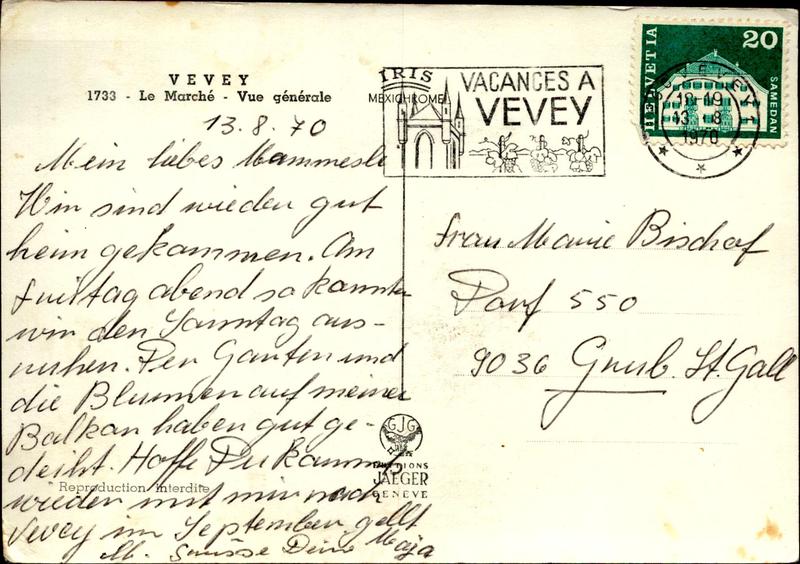 VEVEY
1733 - Le Marché - Vue générale
IRIS
MEXICHROME
13.8.70
Mein liebes Mammesli
Wir sind wieder gut
heim gekommen. Am
Freitag abend so konnten
wir den Samstag aus-
ruhen. Der Garten und
die Blumen auf meinem
Balkon haben gut ge-
deiht. Hoffe Du kommst
wieder mit mir nach
Vevey im September, gellt
M. Grüsse Deine Maja
Reproduction interdite
GJG
EDITIONS
JAEGER
GENEVE
VACANCES A
VEVEY
HELVETIA
20
SAMEDAN
VEVEY 1
18-19
13 8
1970
Frau Marie Bischof
Dorf 550
9036 Grub. St. Gall